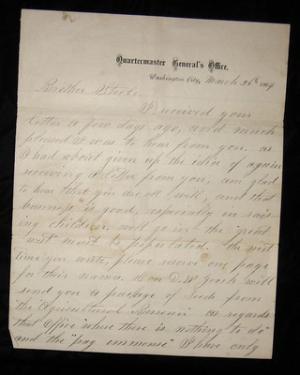 Quartermaster General's Office,
Washington City, March 26th 1864
Brother
I received your
letter a few days ago, and much
pleased I was to hear from you, as
I had about given up the idea of again
receiving a letter from you, am glad
to hear that you are all well, and that
business is good, especially in rais-
ing children, will go in the "great
west" must be populated. The next
time you write, please leave one page
for their names. Hon D.W. Gooch will
send you a package of seeds from
the "Agricultural Bureau" as regards
that Office "where there is nothing to do"
and the "pay immense" I have only